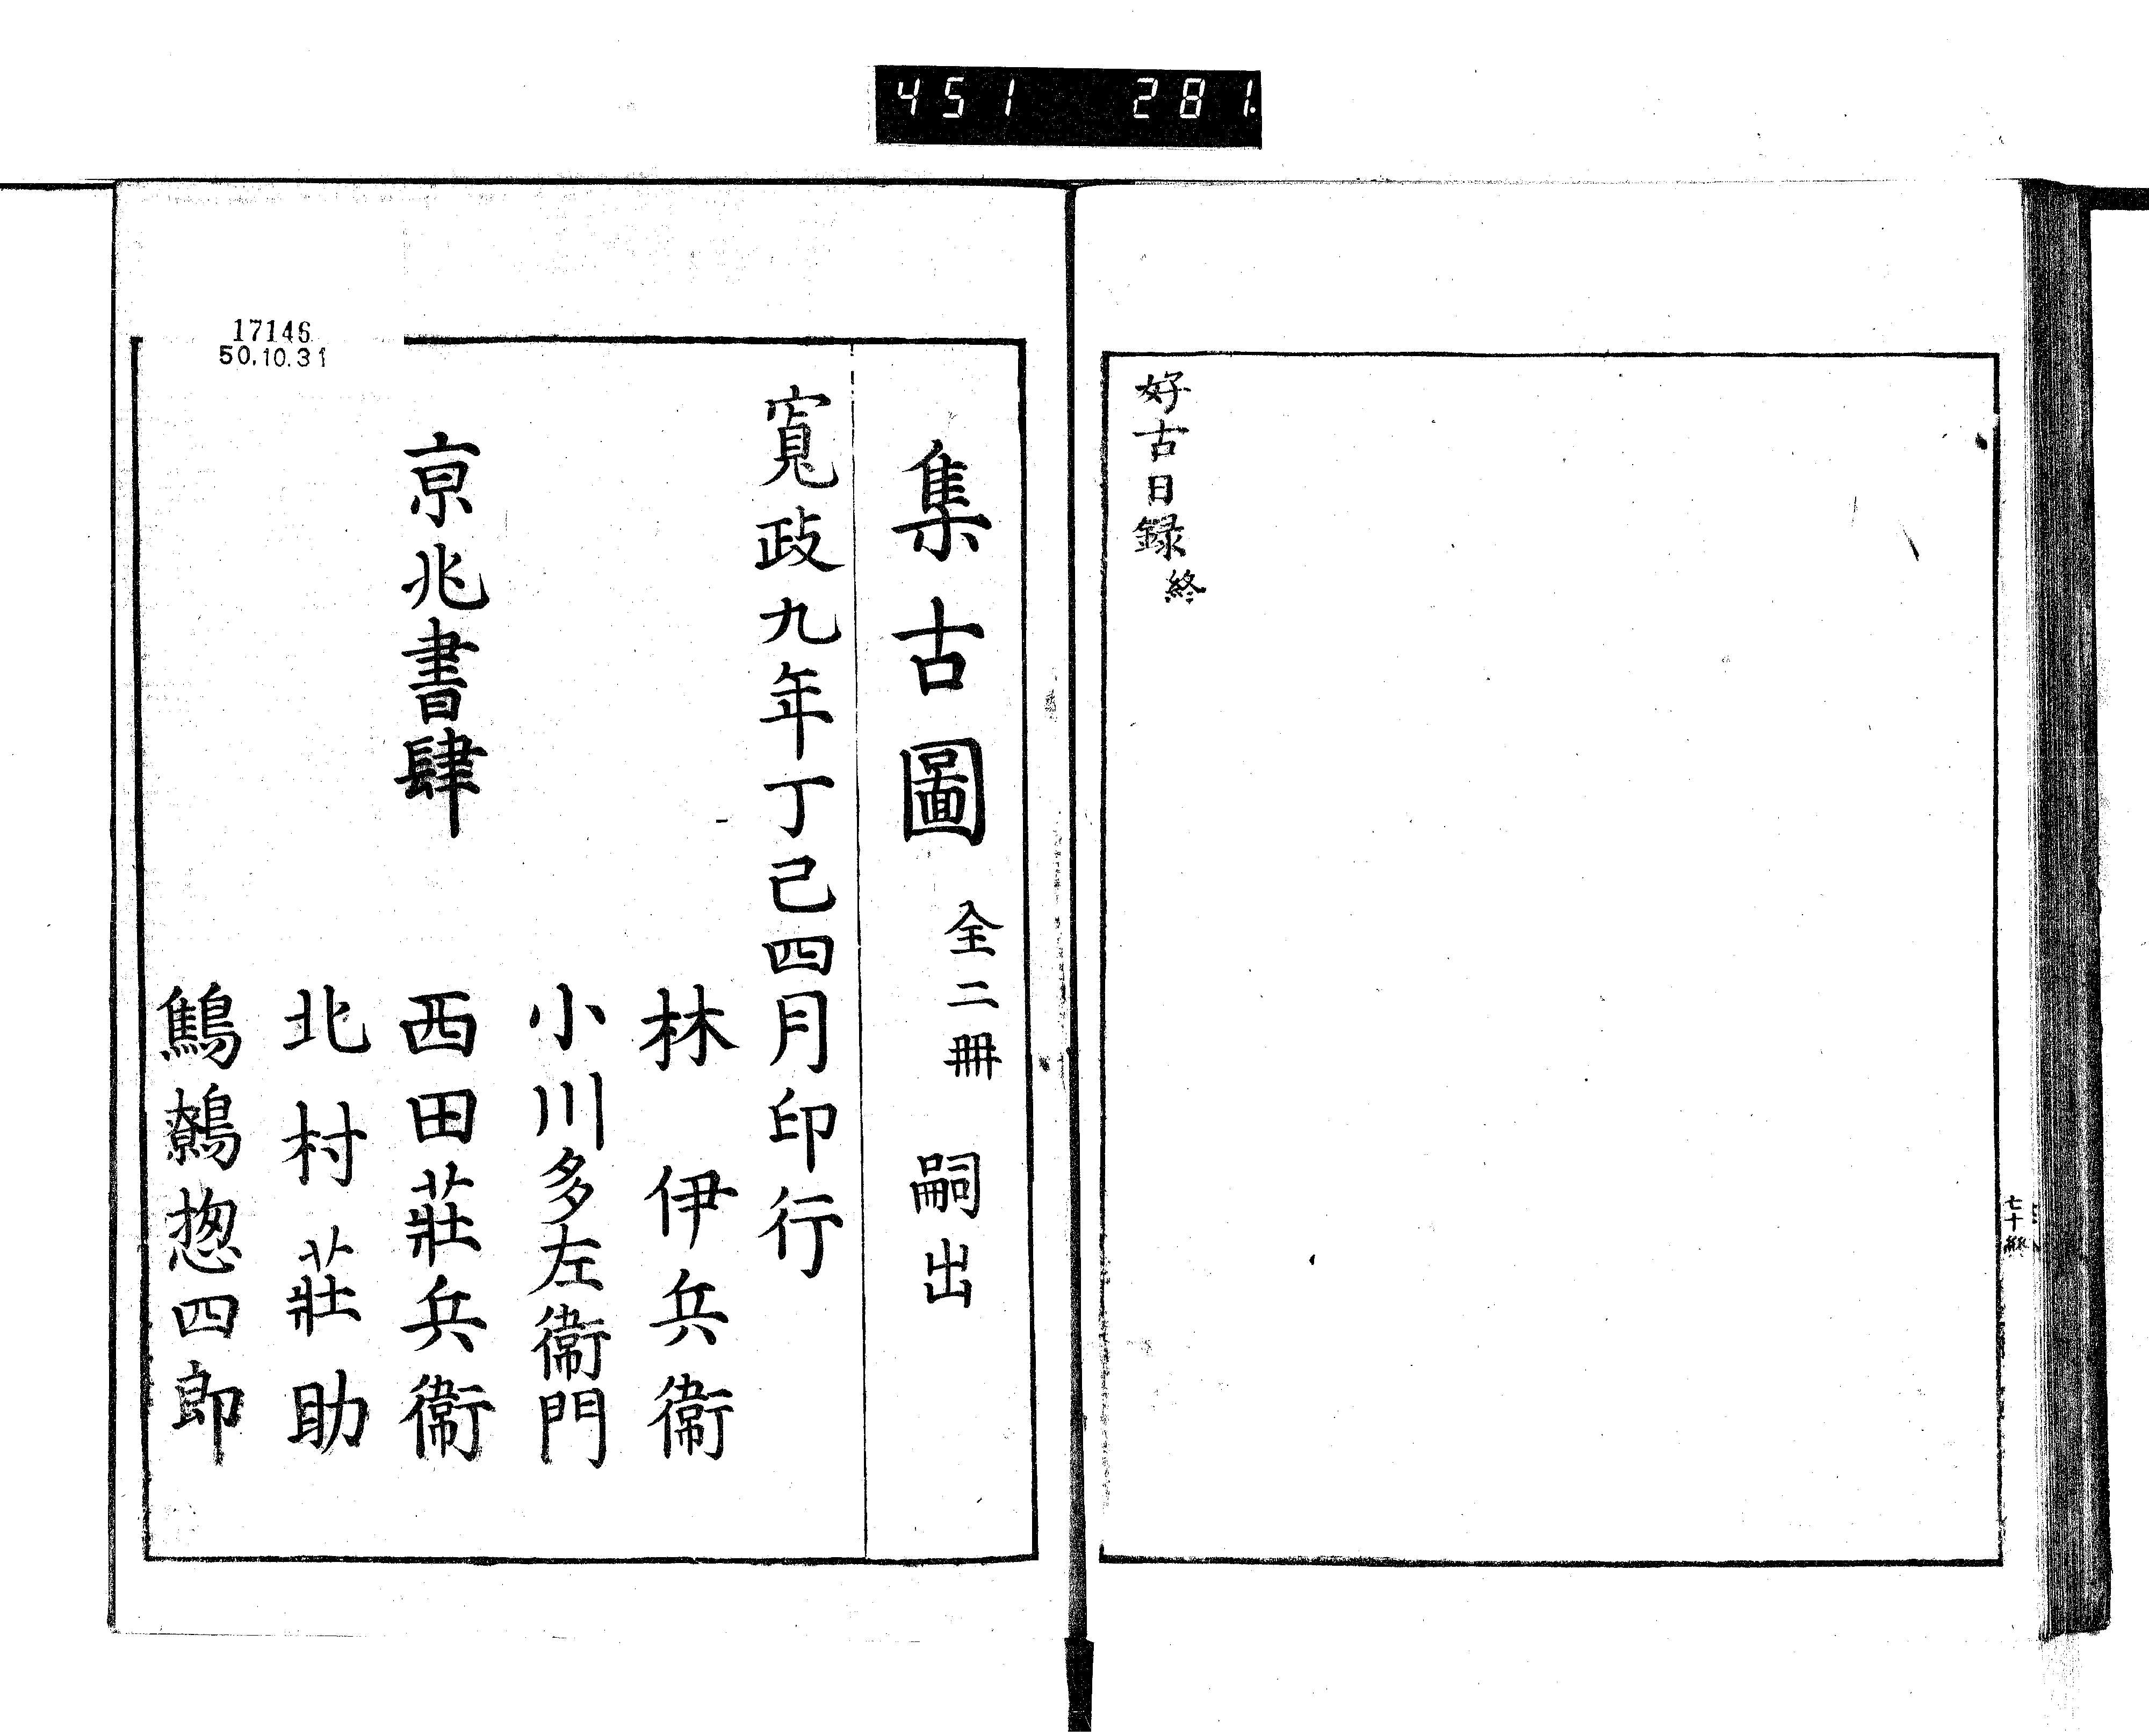 451 281
好古日録終
七十終
集古圖 全二冊 嗣出
寬政九年丁巳四月印行
林 伊兵衞
小川多左衞門
京兆書肆 西田莊兵衞
北村莊助
鷦鷯惣四郎
17146
50.10.31